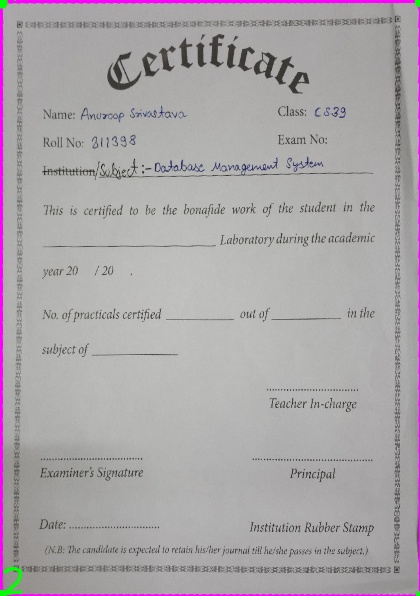 Certificate
Name: Anuroop Srivastava Class: CS39
Roll No: 311398 Exam No:
Institution/Subject :- Database Management System
This is certified to be the bonafide work of the student in the
____________________ Laboratory during the academic
year 20 / 20 .
No. of practicals certified __________ out of __________ in the
subject of ____________
Teacher In-charge
Examiner's Signature Principal
Date: ........................ Institution Rubber Stamp
(N.B: The candidate is expected to retain his/her journal till he/she passes in the subject.)
2